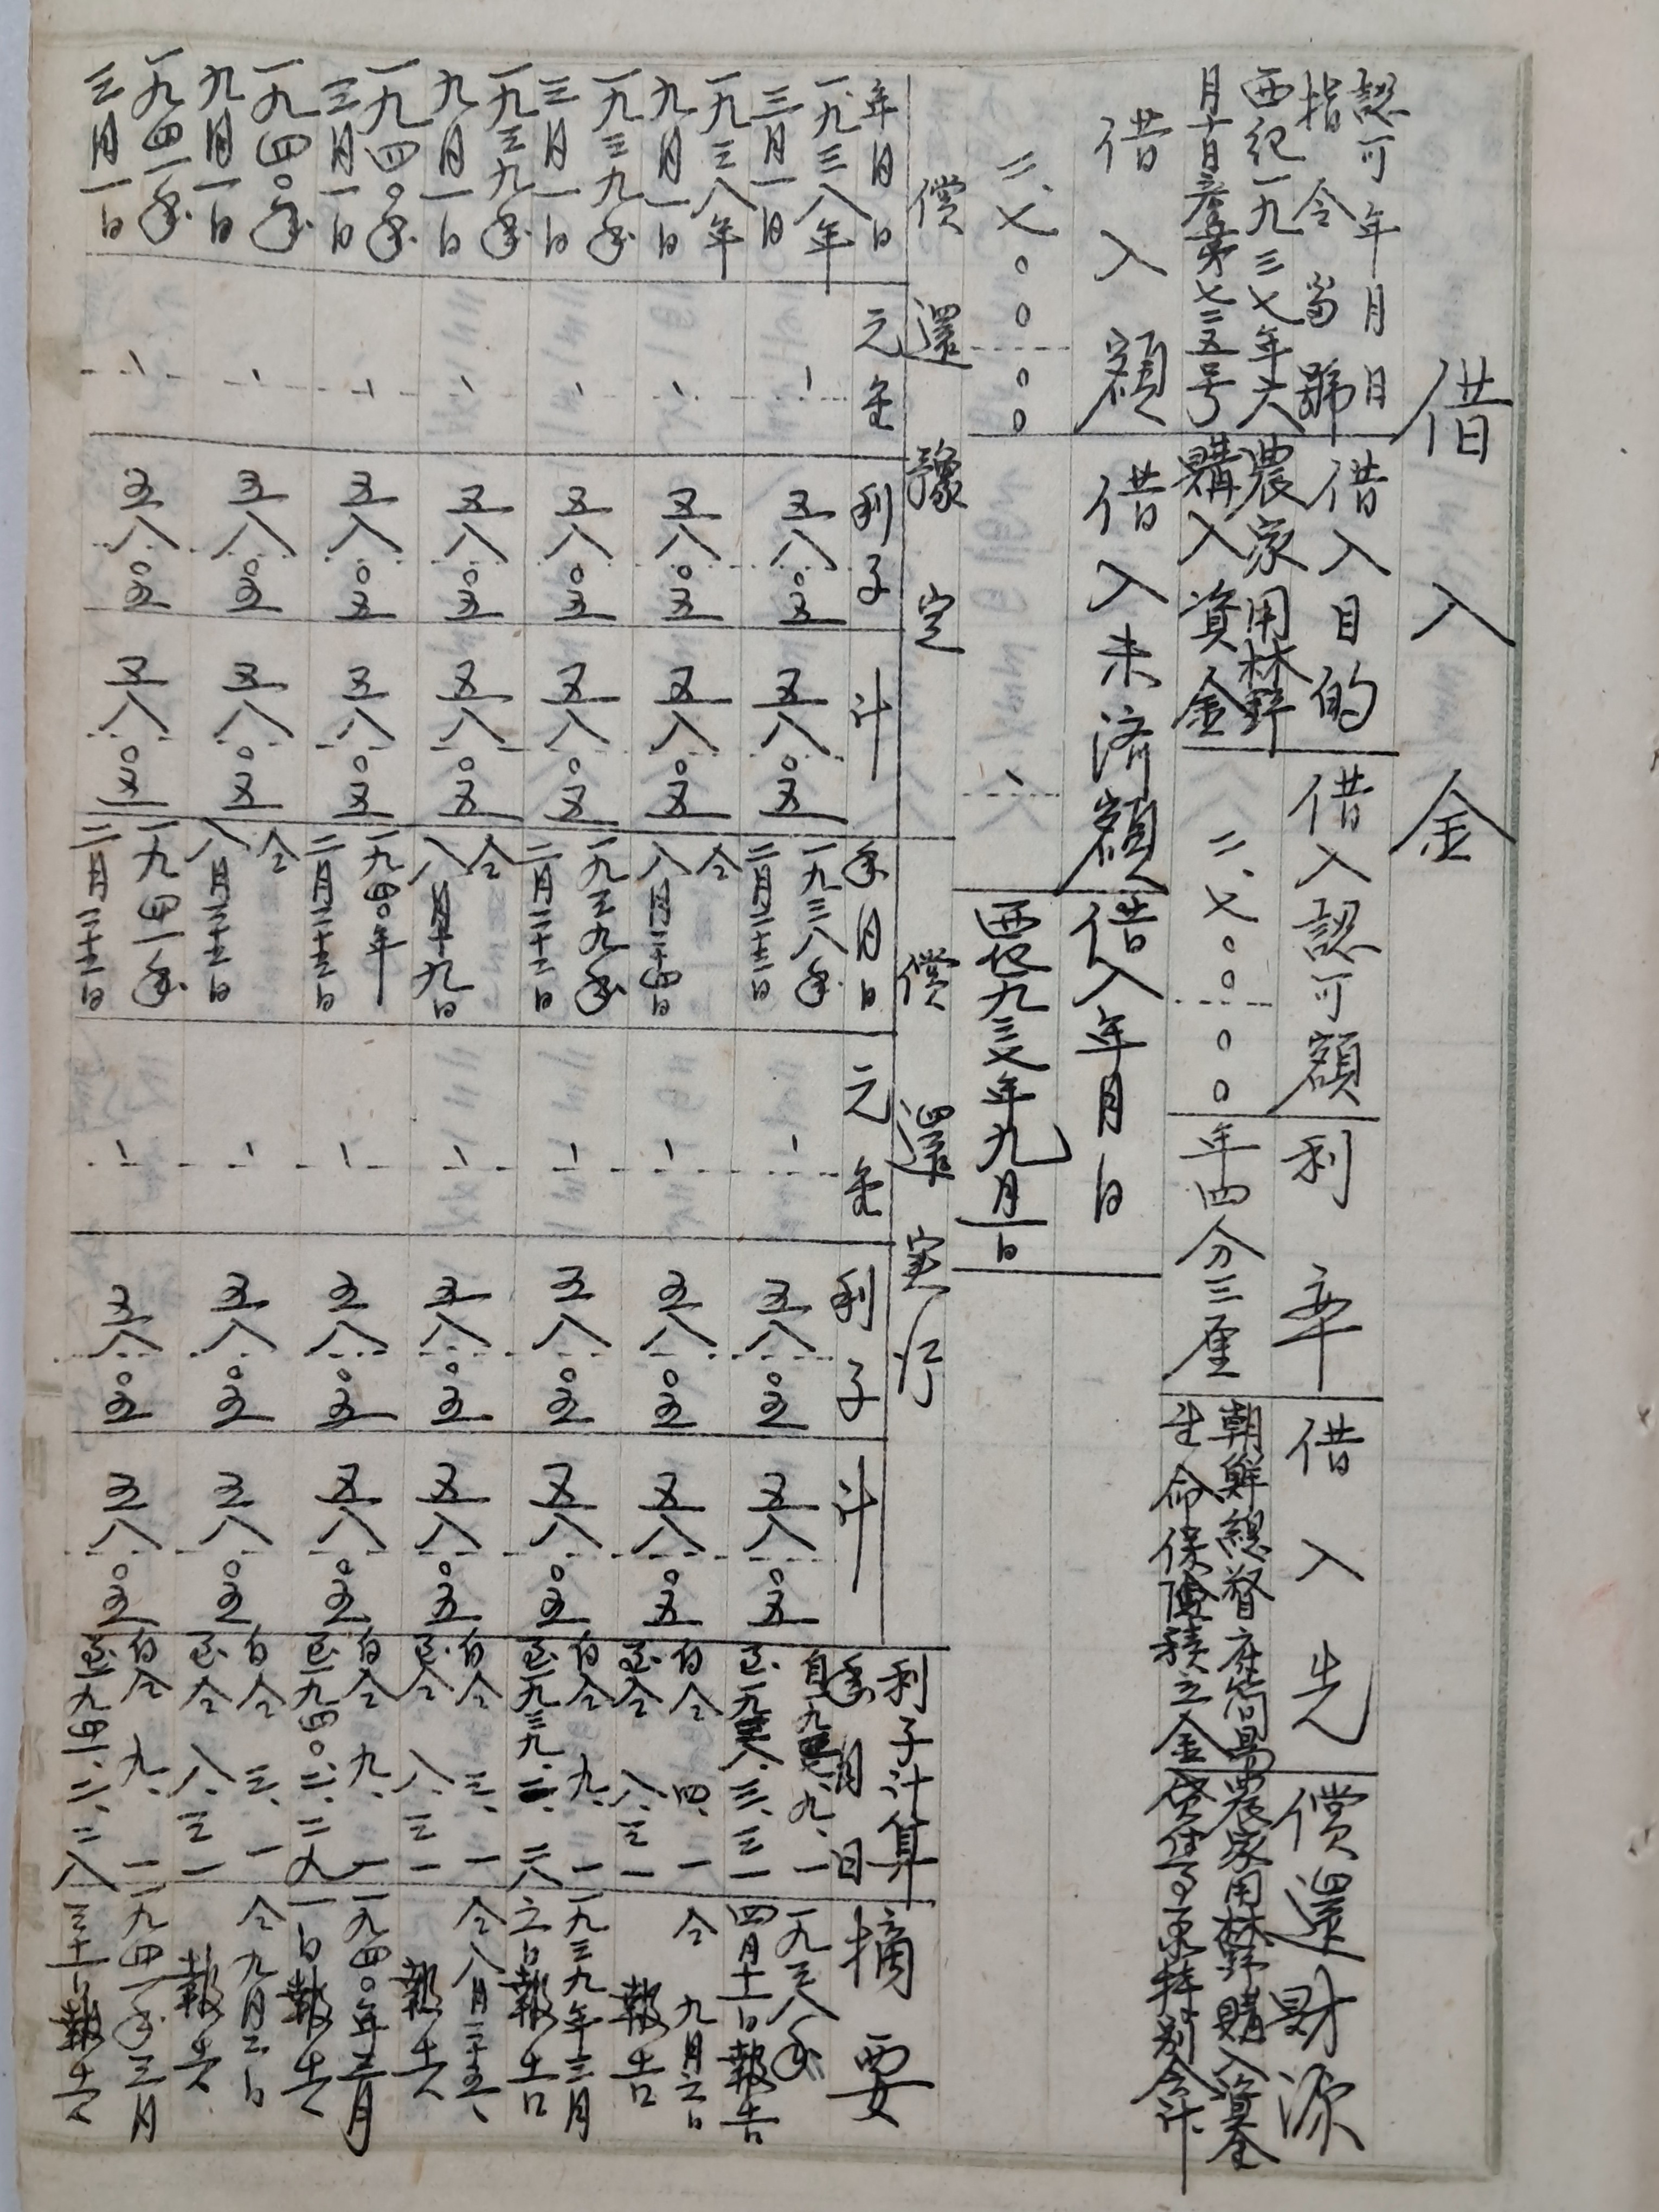 借入金
認可年月日
指令番號
借入目的
借入認可額
利率
借入先
償還財源
西紀一九三七年六
月十日第七三五号
農家用林野
購入資金
二、七〇〇
〇〇
年四分三厘
朝鮮総督府簡易
生命保険積立金
農家用林野購入資金
特別会計
借入額
借入未済額
借入年月日
二、七〇〇
〇〇
、
西紀一九三七年九月一日
償還豫定
償還実行
利子計算
年月日
摘要
年月日
元金
利子
計
年月日
元金
利子
計
一九三八年
三月一日
、
五八〇五
五八〇五
一九三八年
二月二十三日
、
五八〇五
五八〇五
自一九三七、九、一
至一九三八、三、三一
一九三八年
四月十一日報告
一九三八年
九月一日
、
五八〇五
五八〇五
仝
八月二十四日
、
五八〇五
五八〇五
自仝 四、一
至仝 八、三一
仝 九月二日
報告
一九三九年
三月一日
、
五八〇五
五八〇五
一九三九年
二月二十三日
、
五八〇五
五八〇五
自仝 九、一
至一九三九、二、二八
一九三九年三月
六日報告
一九三九年
九月一日
、
五八〇五
五八〇五
仝
八月十九日
、
五八〇五
五八〇五
自仝 三、一
至仝 八、三一
仝八月二十五、
報告
一九四〇年
三月一日
、
五八〇五
五八〇五
一九四〇年
二月二十三日
、
五八〇五
五八〇五
自仝 九、一
至一九四〇、二、二九
一九四〇年三月
一日報告
一九四〇年
九月一日
、
五八〇五
五八〇五
仝
八月三十一日
、
五八〇五
五八〇五
自仝 三、一
至仝 八、三一
仝九月三日
報告
一九四一年
三月一日
、
五八〇五
五八〇五
一九四一年
二月二十三日
、
五八〇五
五八〇五
自仝 九、一
至一九四一、二、二八
一九四一年三月
三十一日報告